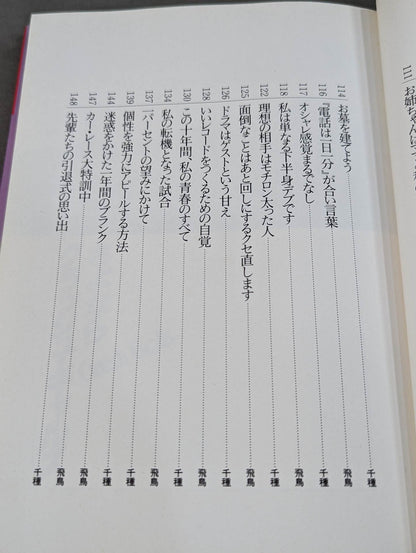 111 お姉ちゃんに
114 お墓を建てよう……千種
116 『電話は一日一分』が合い言葉……飛鳥
117 オシャレ感覚まるでなし……千種
118 私は単なる下半身デブです……飛鳥
122 理想の相手はモチロン太った人……千種
125 面倒なことはあと回しにするクセ直します……飛鳥
126 ドラマはゲストという甘え……千種
128 いいレコードをつくるための自覚……飛鳥
130 この十年間、私の青春のすべて……千種
134 私の転機となった試合……千種
137 一パーセントの望みにかけて……飛鳥
139 個性を強力にアピールする方法……千種
144 迷惑をかけた一年間のブランク……飛鳥
147 カー・レース大特訓中……千種
148 先輩たちの引退式の思い出……飛鳥